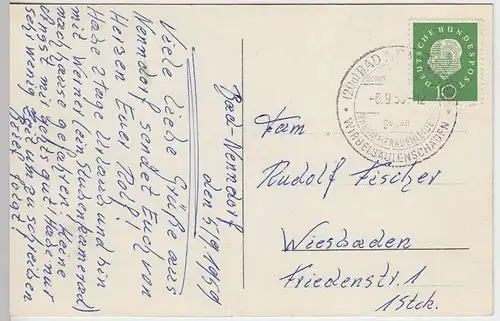 Bad-Nenndorf
den 5/9/1959
Viele liebe Grüße aus
Nenndorf sendet Euch von
Herzen Euer Rolf!
Habe 2 Tage Urlaub und bin
mit Werner (ein Stubenkamerad)
nach Hause gefahren. Keine
Angst mir gehts gut. Habe nur
sehr wenig Zeit um zu schreiben
Brief folgt!
DEUTSCHE BUNDESPOST
10
BAD
-6.9.59-12
gegen
WIRBELSÄULENSCHÄDEN
Fam
Rudolf Fischer
Wiesbaden
Friedenstr. 1
1 Stck.